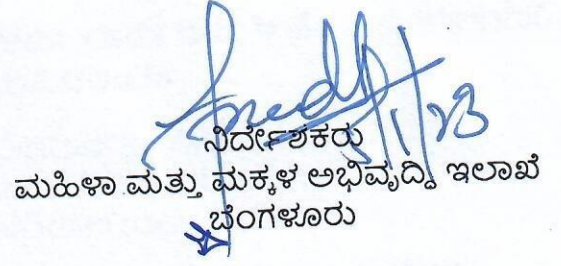 ನಿರ್ದೇಶಕರು
ಮಹಿಳಾ ಮತ್ತು ಮಕ್ಕಳ ಅಭಿವೃದ್ಧಿ ಇಲಾಖೆ
ಬೆಂಗಳೂರು